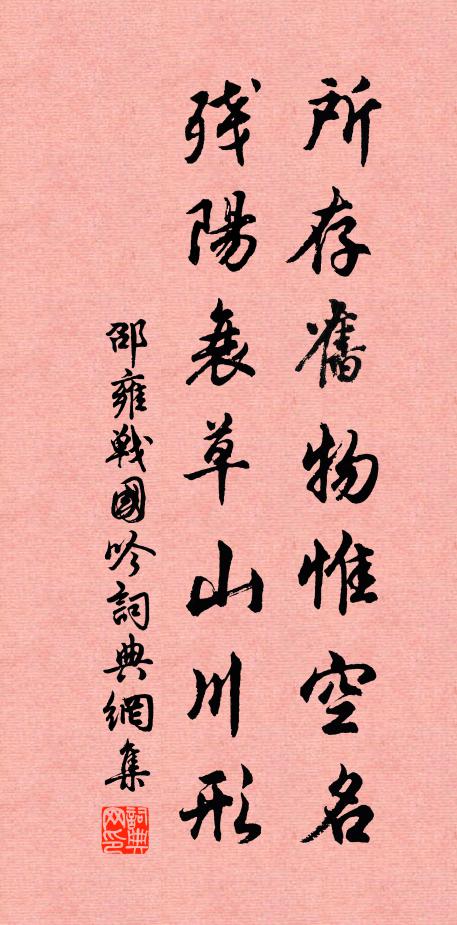 所存舊物惟空名
残陽衰草山川形
邵雍戰國吟詞典網集
詞典网印